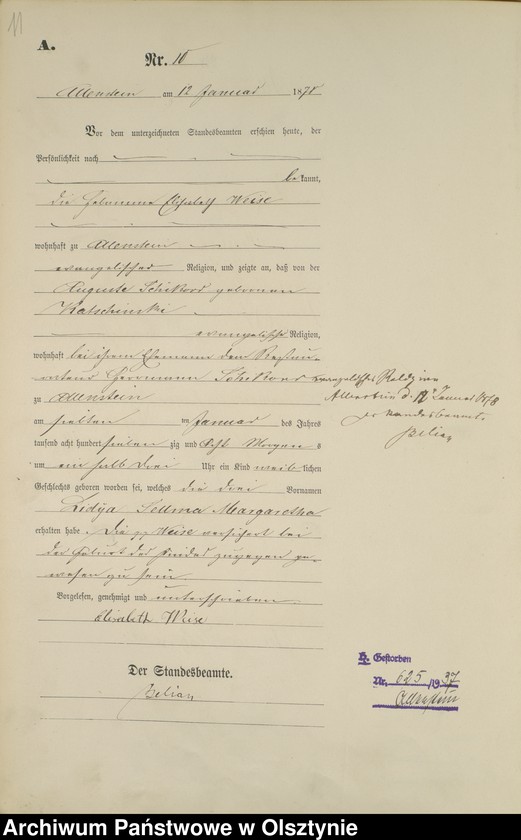 11
A.
Nr. 10
Allenstein am 12 Januar 1878
Vor dem unterzeichneten Standesbeamten erschien heute, der
Persönlichkeit nach
bekannt,
die Hebamme Elisabeth Weise
wohnhaft zu Allenstein
evangelischer Religion, und zeigte an, daß von der
Auguste Schikord geborenen
Katschinski
evangelische Religion,
wohnhaft bei ihrem Ehemann dem
Herrmann Schikord
zu Allenstein
am siebten ten Januar des Jahres
tausend acht hundert sieben zig und acht Morgens
um ein halb drei Uhr ein Kind weiblichen
Geschlechts geboren worden sei, welches die drei Vornamen
Lidÿa Sellma Margaretha
erhalten habe. Die Weise versichert bei
der Geburt des Kindes zugegen ge-
wesen zu sein.
Vorgelesen, genehmigt und unterschrieben
Elisabeth Weise
Der Standesbeamte.
Belian
evangelischer Religion
Allenstein d. 12 Januar 1878
Der Standesbeamte.
Belian
H. Gestorben
Nr. 625/1937
Allenstein
Archiwum Państwowe w Olsztynie